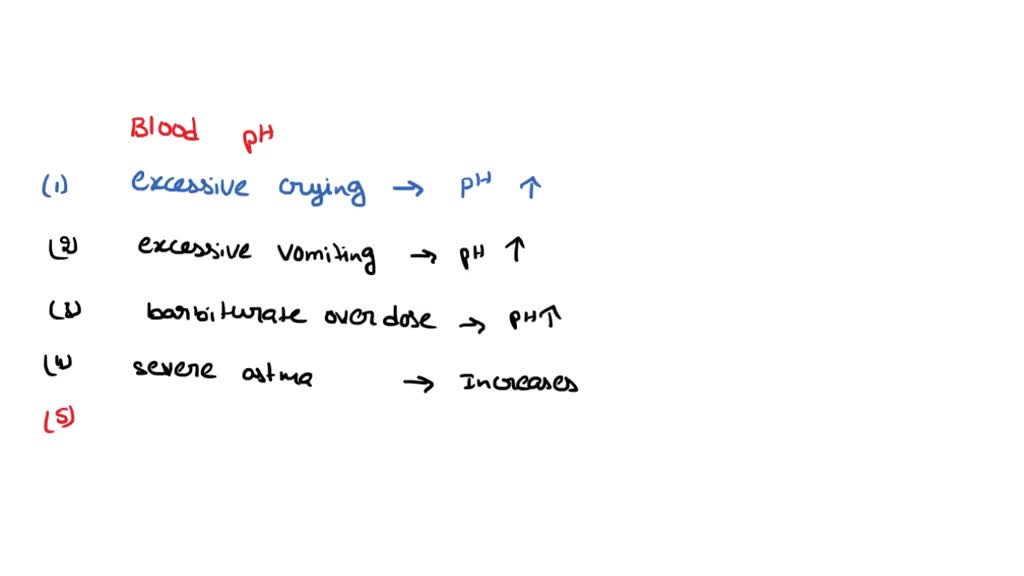 Blood pH
(1) excessive crying → pH ↑
(2) excessive vomiting → pH ↑
(3) barbiturate overdose → pH ↑
(4) severe astma → Increases
(5)